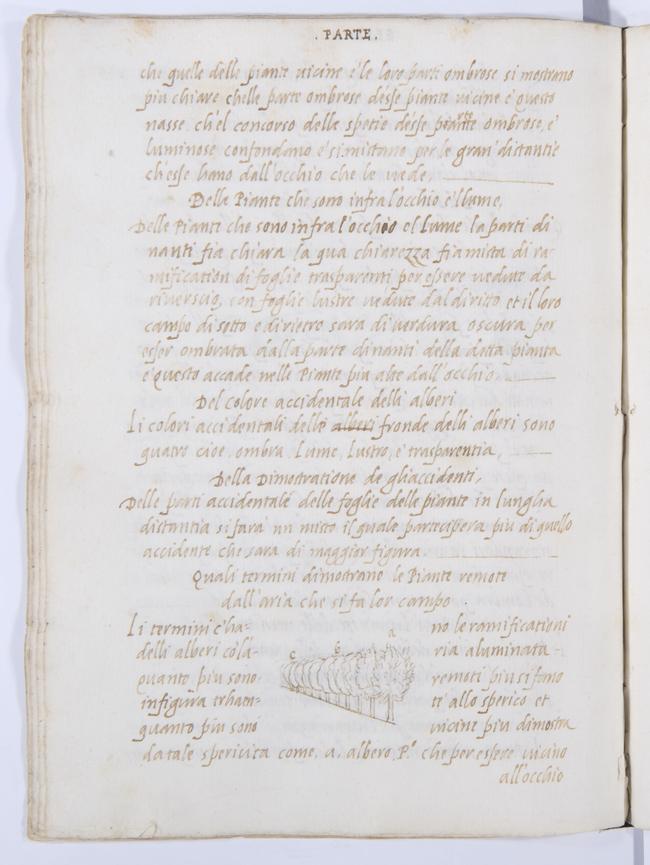 . PARTE .
che quelle delle piante uicine e le loro parti ombrose si mostrano
piu chiare chelle parte ombrose desse piante uicine e questo
nasse ch'el concorso della spetie desse piante ombrose, e
luminose confondano e si mistano per le gran distantie
ch'esse hano dall'occhio che le uede.
Della Piante che sono infra l'occhio e'l lume,
Delle Piante che sono infra l'occhio el lume la parti di
nanti fia chiara la qua chiarezza fia mista di ra-
mification di foglie trasparenti per essere uedute da
riuerscio, con foglie lustre uedute dal diritto et il loro
campo di sotto e di rietro sara di uerdura oscura per
esser ombrata dalla parte dinanti della detta pianta
e questo accade nelle Piante piu alte dall'occhio
Del Colore accidentale delli alberi
Li colori accidentali delle alberi fronde delli alberi sono
quatro cioe, ombra, Lume, Lustro, e trasparentia,
Della Dimostratione de gliaccidenti,
Delle parti accidentale delle foglie delle piante in lungha
distantia si fara un misto il quale partecipera piu di quello
accidente che sara di maggior figura
Quali termini dimostrano le Piante remote
dall'aria che si fa lor campo
Li termini c'ha- no le ramificationi
delli alberi co la- ria aluminata -
quanto piu sono remoti piu si fano
infigura trhan- te' allo sperico et
quanto piu sono uicine piu dimostra
a
b
c
da tale spericita come. a. albero. P.º che per essere uicino
all'occhio